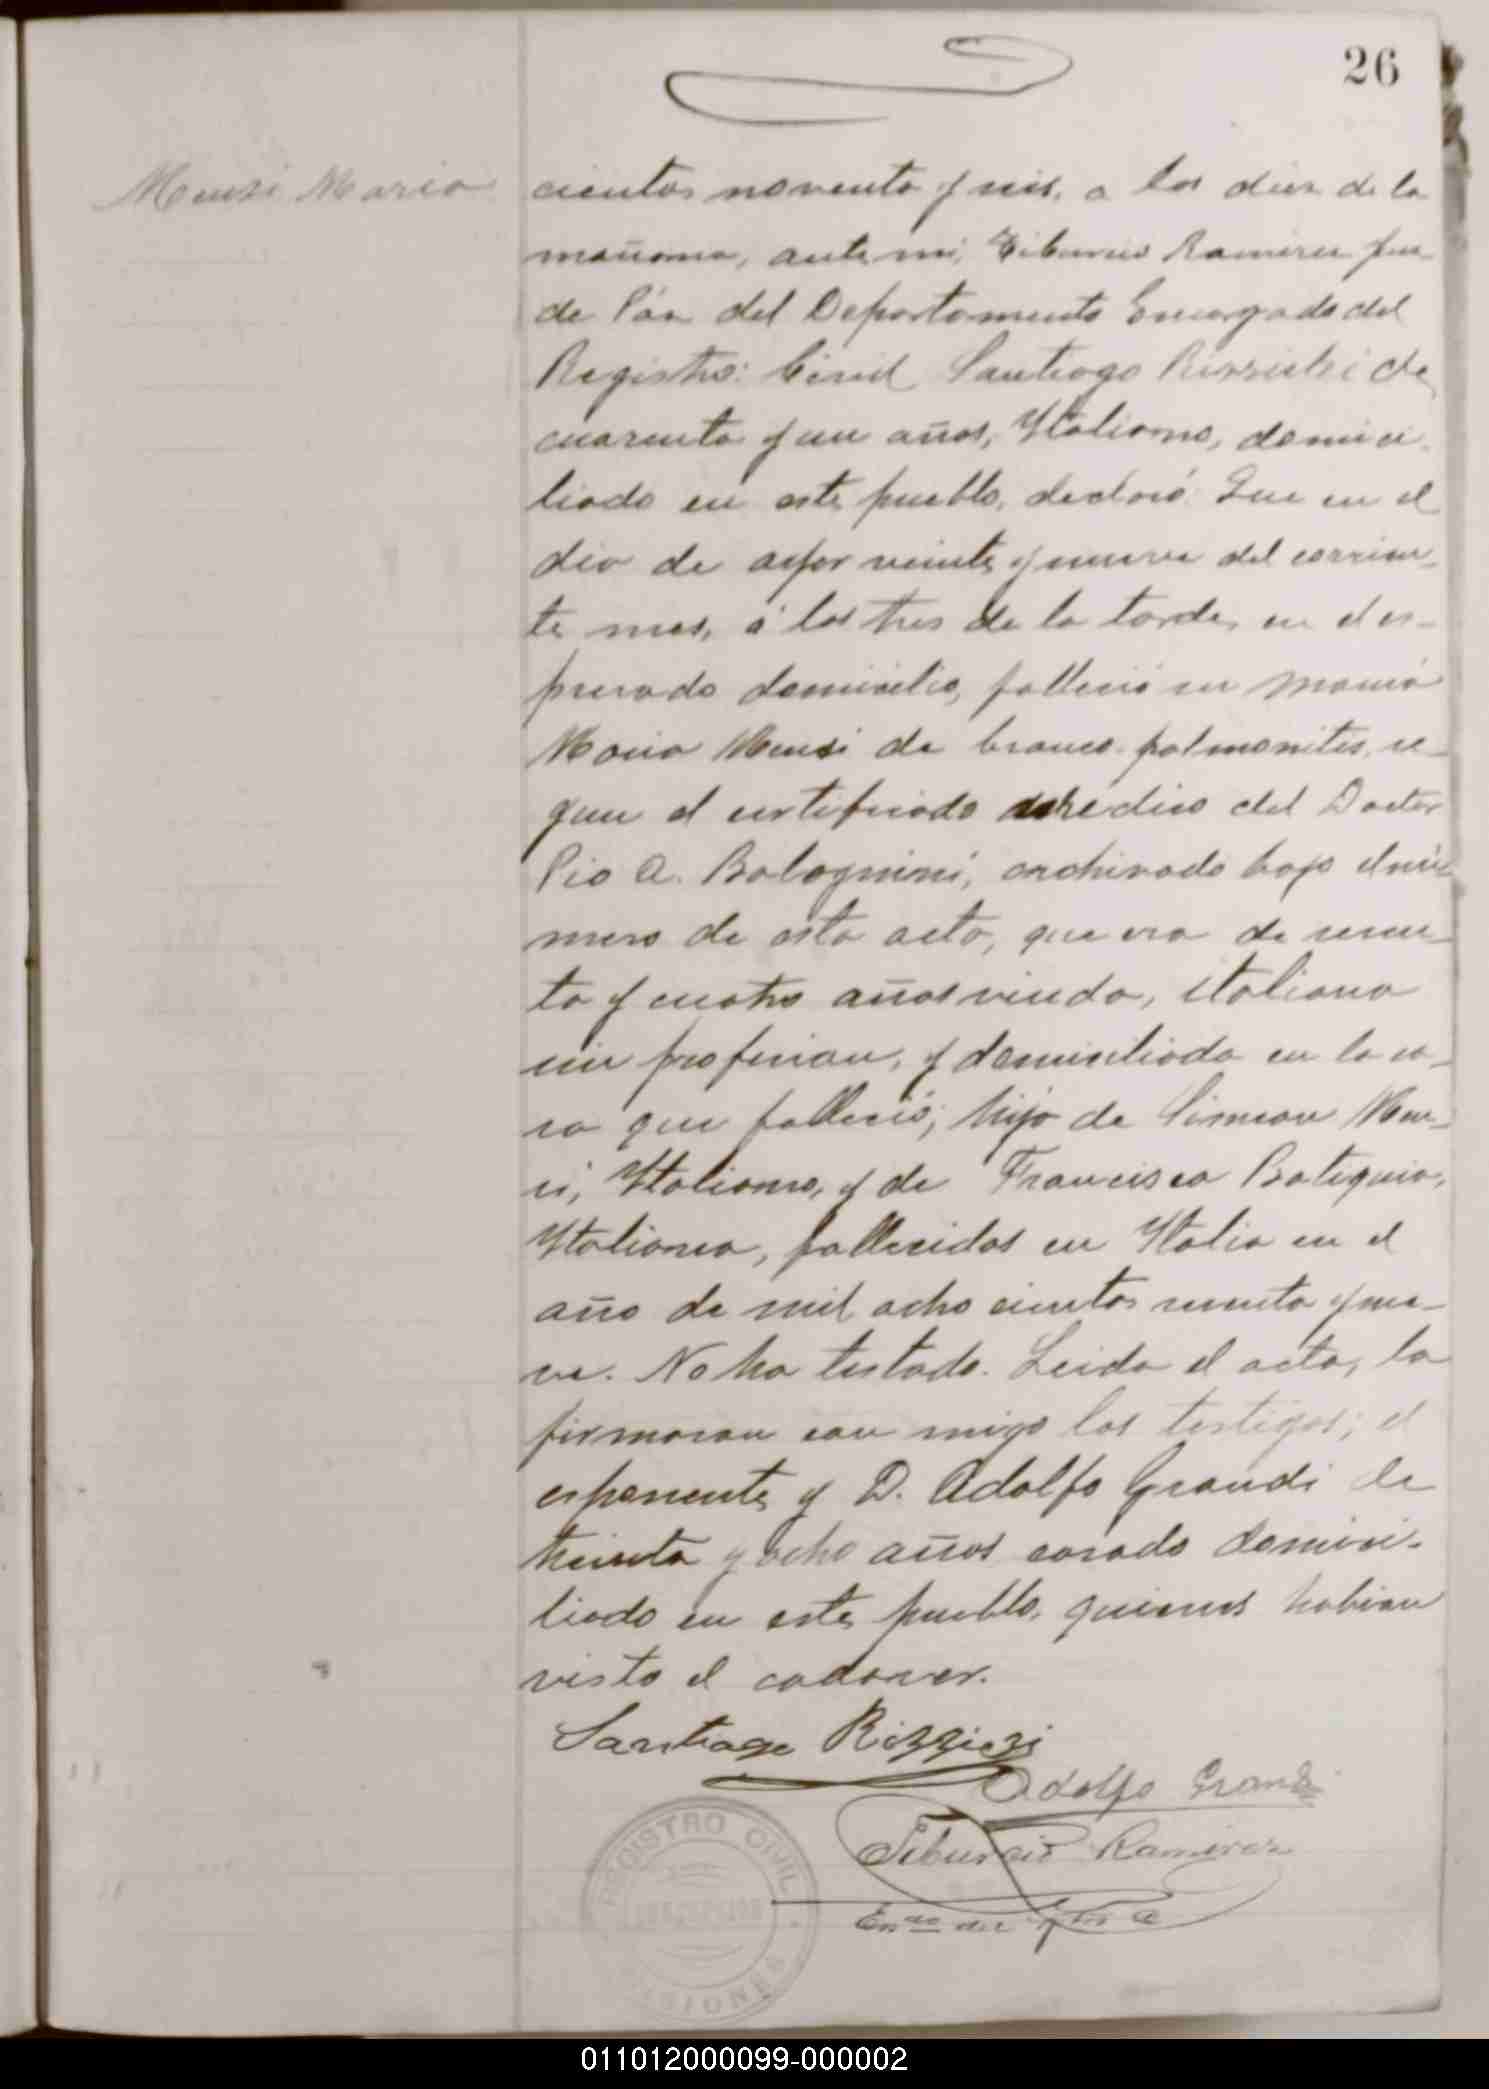 26
Mensi Maria
cientos noventa y seis, a las diez de la
mañana, ante mi, Tiburcio Ramirez Juez
de Páz del Departamento Encargado del
Registro Civil Santiago Rizzieri de
cuarenta y un años, Italiano, domici-
liado en este pueblo, declaró: Que en el
dia de ayer veinte y nueve del corrien-
te mes, á las tres de la tarde, en el es-
presado domicilio, falleció su mamá
Maria Mensi de bronco-polmonites, se-
gun el certificado medico del Doctor
Pio A. Bolognini, archivado bajo el nú-
mero de esta acta, que era de sesen-
ta y cuatro años viuda, italiana
sin profesion, y domiciliada en la ca-
sa que falleció; hija de Simeon Men-
si, Italiano, y de Francisca Botequia,
Italiana, fallecidos en Italia en el
año de mil ocho cientos sesenta y nue-
ve. No ha testado. Leida el acta, la
firmaron con migo los testigos; el
esponente y D. Adolfo Grandi de
treinta y ocho años casado domici-
liado en este pueblo, quienes habian
visto el cadaver.
Santiago Rizzieri
Adolfo Grandi
Tiburcio Ramirez
REGISTRO CIVIL
MISIONES
011012000099-000002